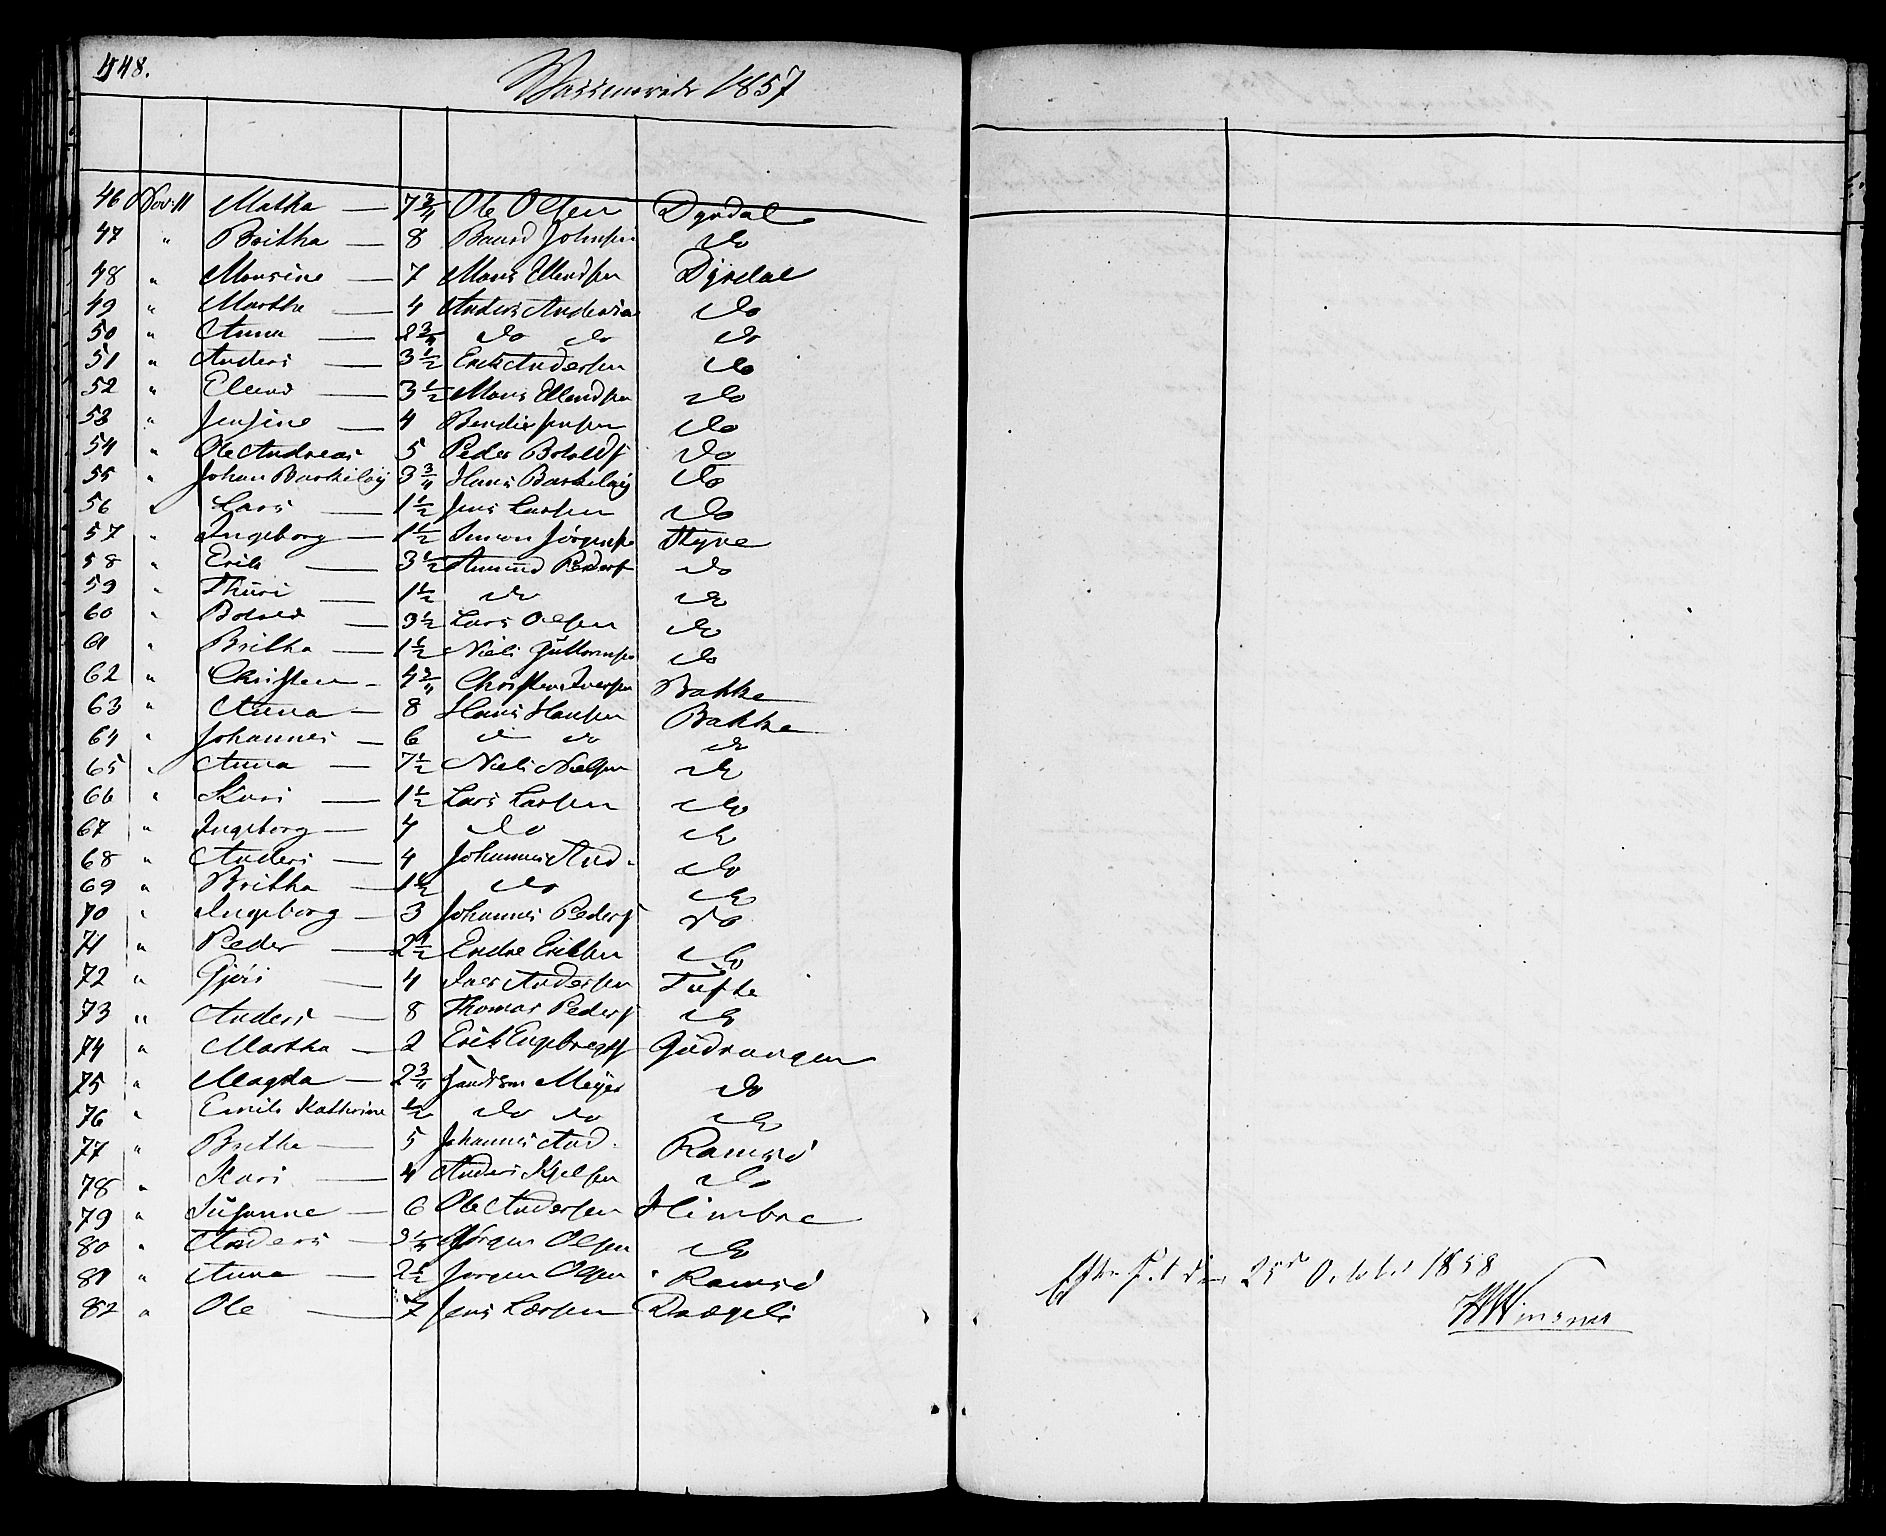 448.
Vaccinerede 1857
46 Nov: 11 Martha — 7 3/4 Ole Olsen Dyrdal
47 " Britha — 8 Baard Johnsen do
48 " Monsine — 7 Mons Ellendsen Dyrdal
49 " Martha — 4 Anders Andersen do
50 " Anna — 2 3/4 do do do
51 " Anders — 3 1/2 Erik Andersen do
52 " Ellend — 3 1/2 Mons Ellendsen do
53 " Jensine — 4 Bendix Jensen do
54 " Ole Andreas 5 Peder Botolds do
55 " Johan 3 3/4 Hans do
56 " Lars — 1 1/2 Jens Larsen do
57 " Ingeborg — 1 1/2 Simon Jørgens Styve
58 " Erik — 3 1/2 Amund Peders do
59 " Thuri — 1 1/2 do do
60 " Botold — 3 1/2 Lars Olsen do
61 " Britha — 1 1/2 Niels Guttormsen do
62 " Christen — Christen Iversen Bakke
63 " Anna — 8 Hans Hansen Bakke
64 " Johannes — 6 do do do
65 " Anna — 7 1/2 Niels Nielsen do
66 " Kari — 1 1/2 Lars Larsen do
67 " Ingeborg — 4 do do
68 " Anders — 4 Johannes And. do
69 " Britha — 1 1/2 do do
70 " Ingeborg — 3 Johannes Peders do
71 " Peder — 2 1/2 Endre Eriksen do
72 " Gjøri — 4 Iver Andersen Tufte
73 " Anders — 8 Thomas Peders do
74 " Martha — 2 Erik Engebregts Gudvangen
75 " Magda — 2 3/4 Meyer do
76 " Emile Kathrine 1/2 do do do
77 " Britha — 5 Johannes And. Ramsø
78 " Kari — 4 Anders Kjelsen do
79 " Susanne — 6 Ole Andersen Himbre
80 " Anders — Jørgen Olsen do
81 " Anna — 2 1/2 Jørgen Olsen Ramsø
82 " Ole — 7 Jens Larsen Drægeli
25de October 1858